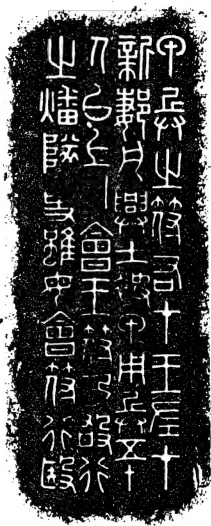 甲兵之符右才王左才
新郪凡興士被甲用兵五十
人以上必會王符乃敢行
之燔隊事雖母會符行殹